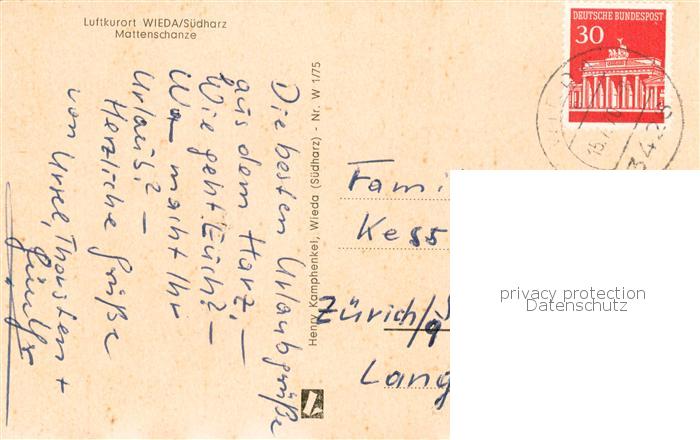 Luftkurort WIEDA/Südharz
Mattenschanze
DEUTSCHE BUNDESPOST
30
3426
Die besten Urlaubgrüße
aus dem Harz, —
Wie geht Euch? —
Wo macht Ihr
Urlaub? —
Herzliche Grüße
von Ursel, Thorsten +
Henry Kamphenkel, Wieda (Südharz) - Nr. W 1/75
Fami
Kess
Zürich/
Lang
privacy protection
Datenschutz